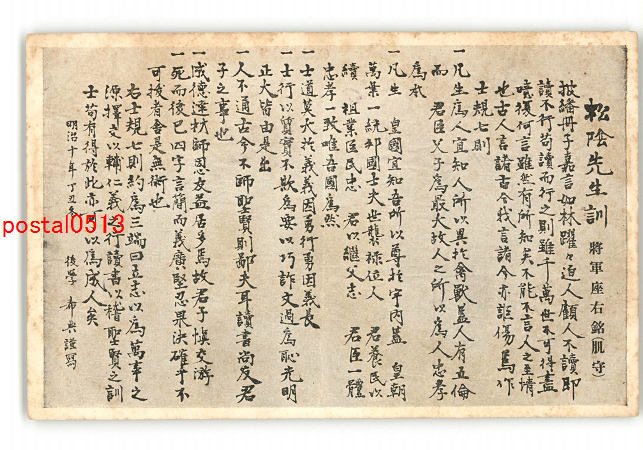 松陰先生訓
(將軍座右銘肌守)
披繙冊子嘉言如林躍々迫人顧人不讀即
讀不行苟讀而行之則雖千萬世不可得盡
噫復何言雖然有所知矣不能不言人之至情
也古人言諸古今我言諸今亦詎傷焉作
士規七則
一凡生爲人宜知人所以異於禽獸蓋人有五倫
而 君臣父子爲最大故人之所以爲人忠孝
爲本
一凡生 皇國宜知吾所以尊於宇内蓋 皇朝
萬葉一統邦國士夫世襲祿位人 君養民以
續 祖業臣民忠 君以繼父志 君臣一體
忠孝一致唯吾國爲然
一士道莫大於義義因勇行勇因義長
一士行以質實不欺爲要以巧詐文過爲恥光明
正大皆由是出
一人不通古今不師聖賢則鄙夫耳讀書尚友君
子之事也
一成德達材師恩友益居多焉故君子慎交游
一死而後已四字言簡而義廣堅忍果決確乎不
可拔者舍是無術也
右士規七則約爲三端曰立志以爲萬事之
源擇交以輔仁義之行讀書以稽聖賢之訓
士苟有得於此亦可以爲成人矣
明治十年丁丑冬
後學 希典謹寫
postal0513